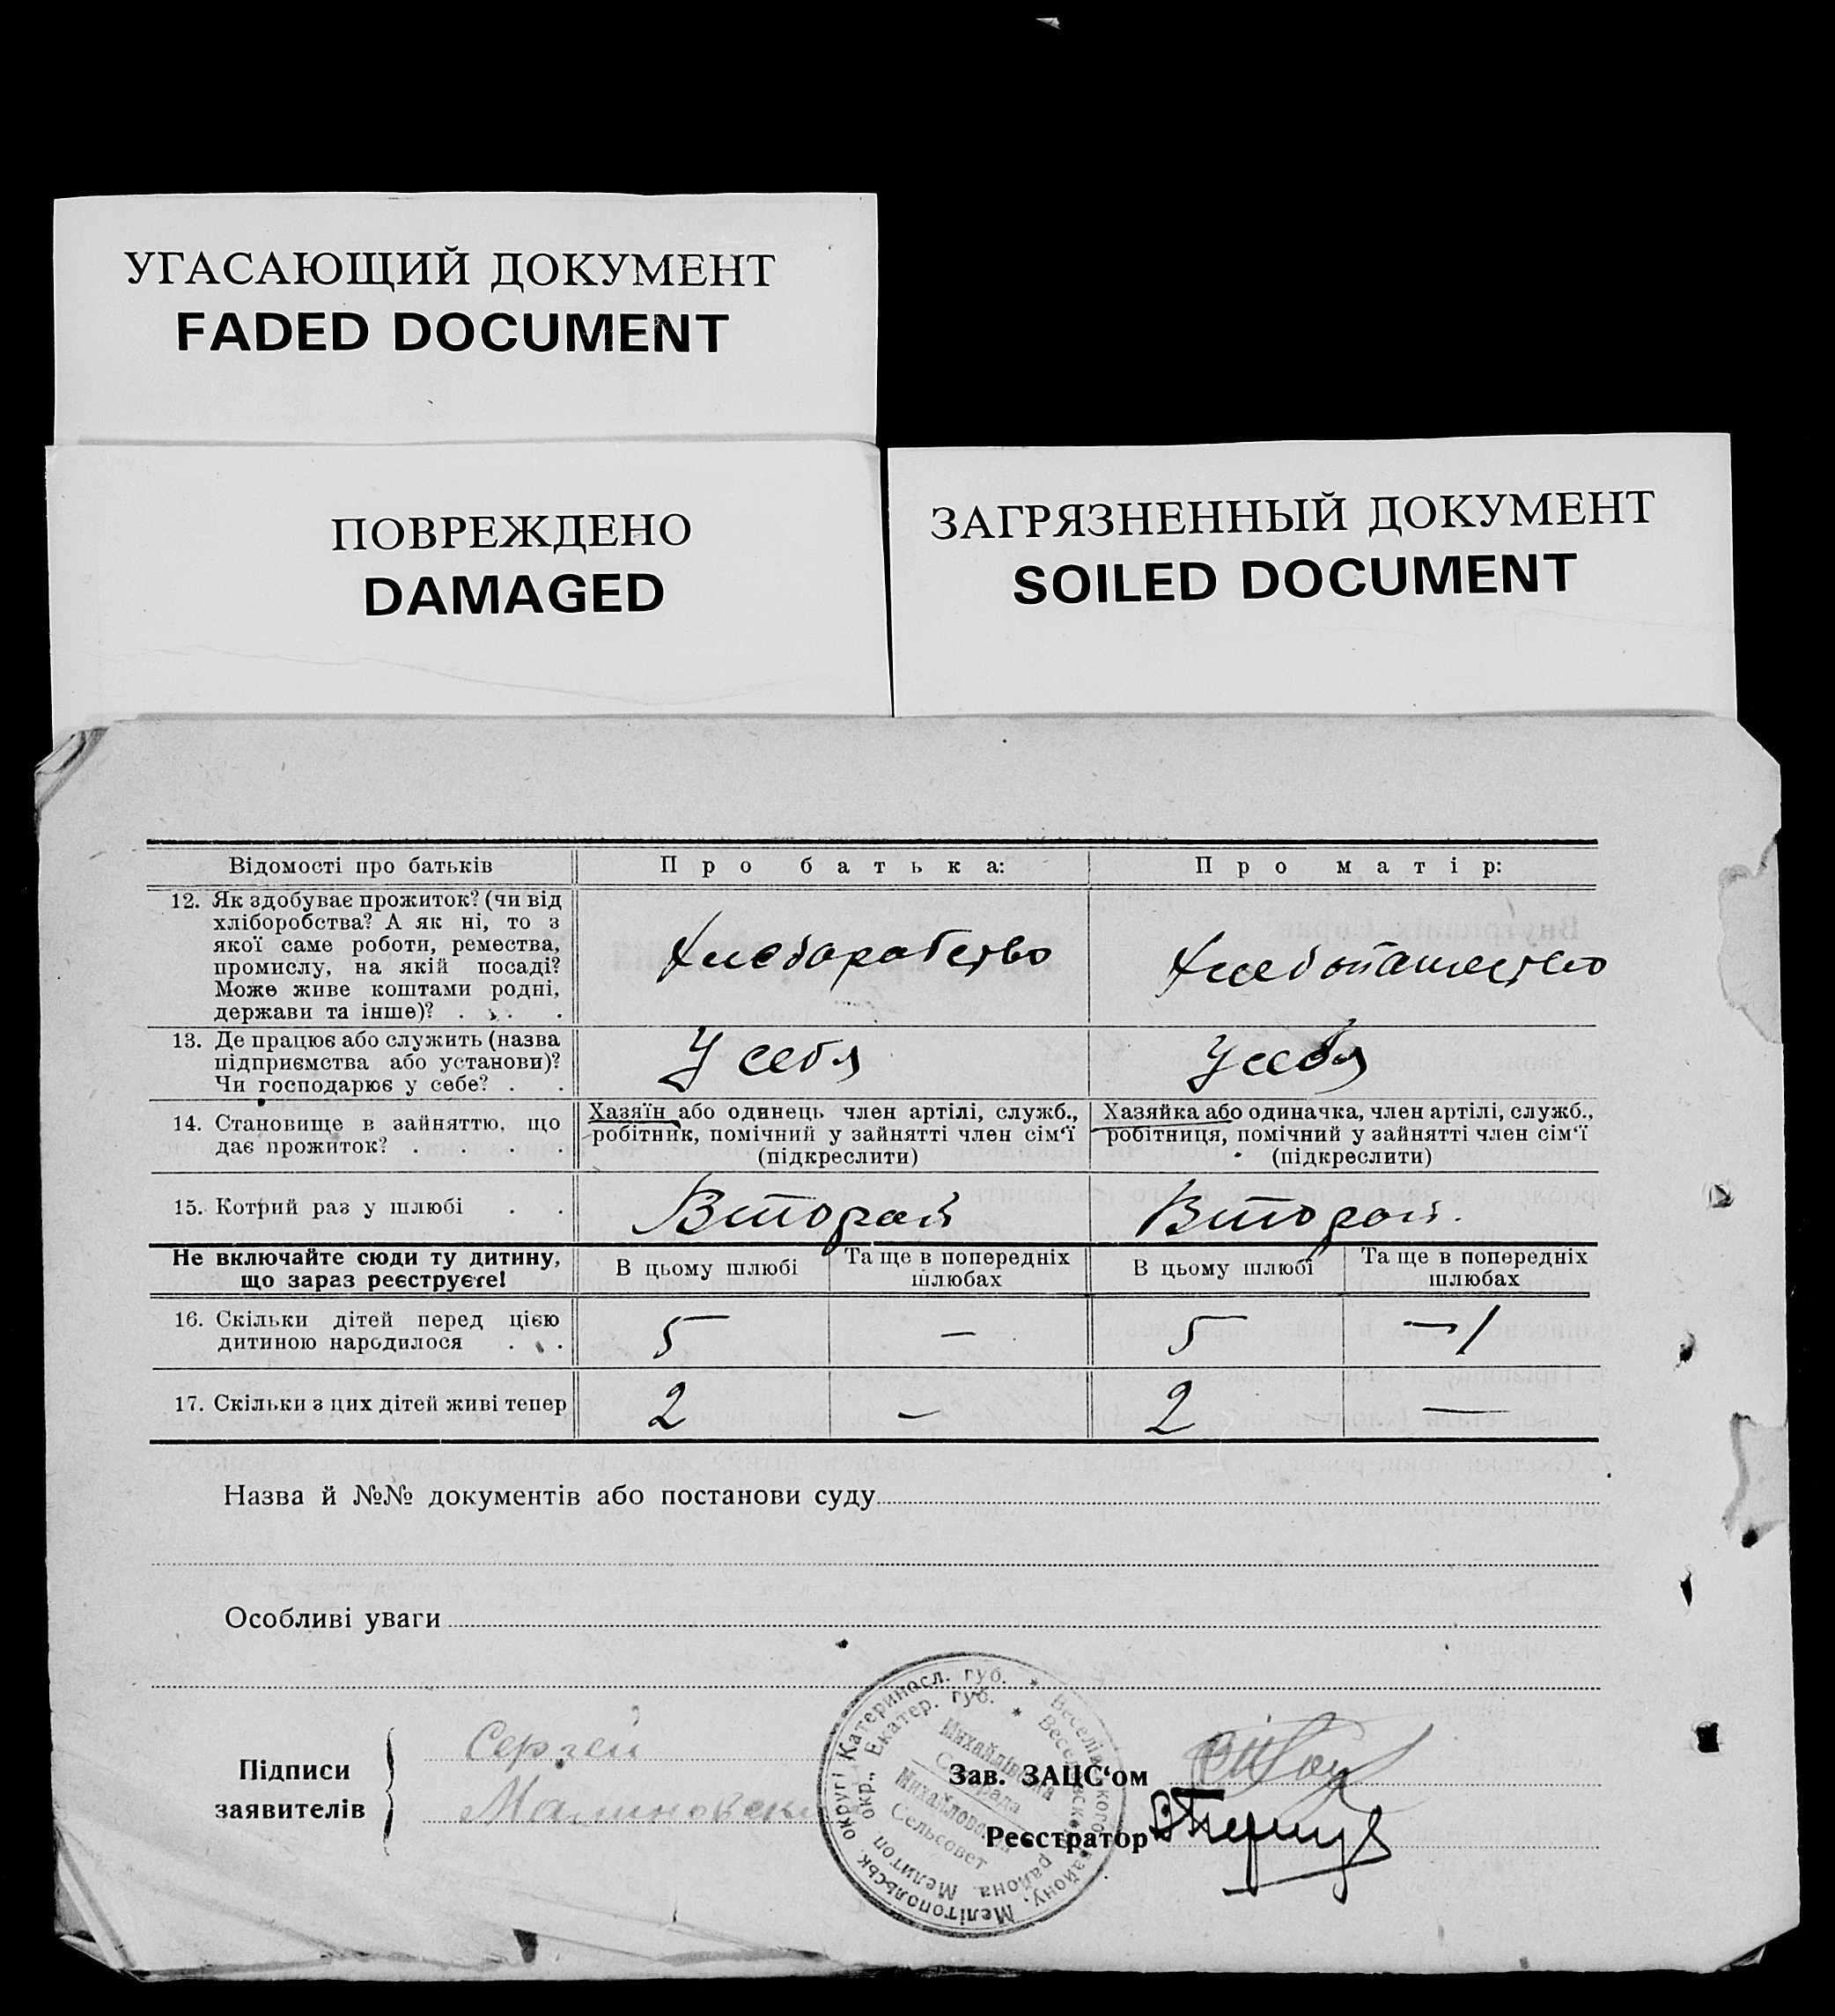 УГАСАЮЩИЙ ДОКУМЕНТ
FADED DOCUMENT
ПОВРЕЖДЕНО
DAMAGED
ЗАГРЯЗНЕННЫЙ ДОКУМЕНТ
SOILED DOCUMENT
Відомості про батьків
Про батька:
Про матір:
12. Як здобуває прожиток? (чи від
хліборобства? А як ні, то з
якої саме роботи, ремества,
промислу, на якій посаді?
Може живе коштами родні,
держави та інше)? . . .
Хлеборобство
Хлебопашество
13. Де працює або служить (назва
підприємства або установи)?
Чи господарює у себе? . .
У себя
У себя
14. Становище в зайняттю, що
дає прожиток? . . . .
Хазяїн або одинець член артілі, служб.,
робітник, помічний у зайнятті член сім'ї
(підкреслити)
Хазяйка або одиначка, член артілі, служб.,
робітниця, помічний у зайнятті член сім'ї
(підкреслити)
15. Котрий раз у шлюбі . .
Второй
Второй.
Не включайте сюди ту дитину,
що зараз реєструєте!
В цьому шлюбі
Та ще в попередніх
шлюбах
В цьому шлюбі
Та ще в попередніх
шлюбах
16. Скільки дітей перед цією
дитиною народилося . . .
5
—
5
— 1
17. Скільки з цих дітей живі тепер
2
—
2
—
Назва й №№ документів або постанови суду
Особливі уваги
Підписи
заявителів
Сергей
Малиновски
Мелітопольськ. округі Катериносл. губ. * Веселівського району,
Мелитоп. окр., Екатер. губ. * Веселовск. района.
Михайлівська
Сельрада
Михайловский
Сельсовет
Зав. ЗАЦС'ом
Реєстратор